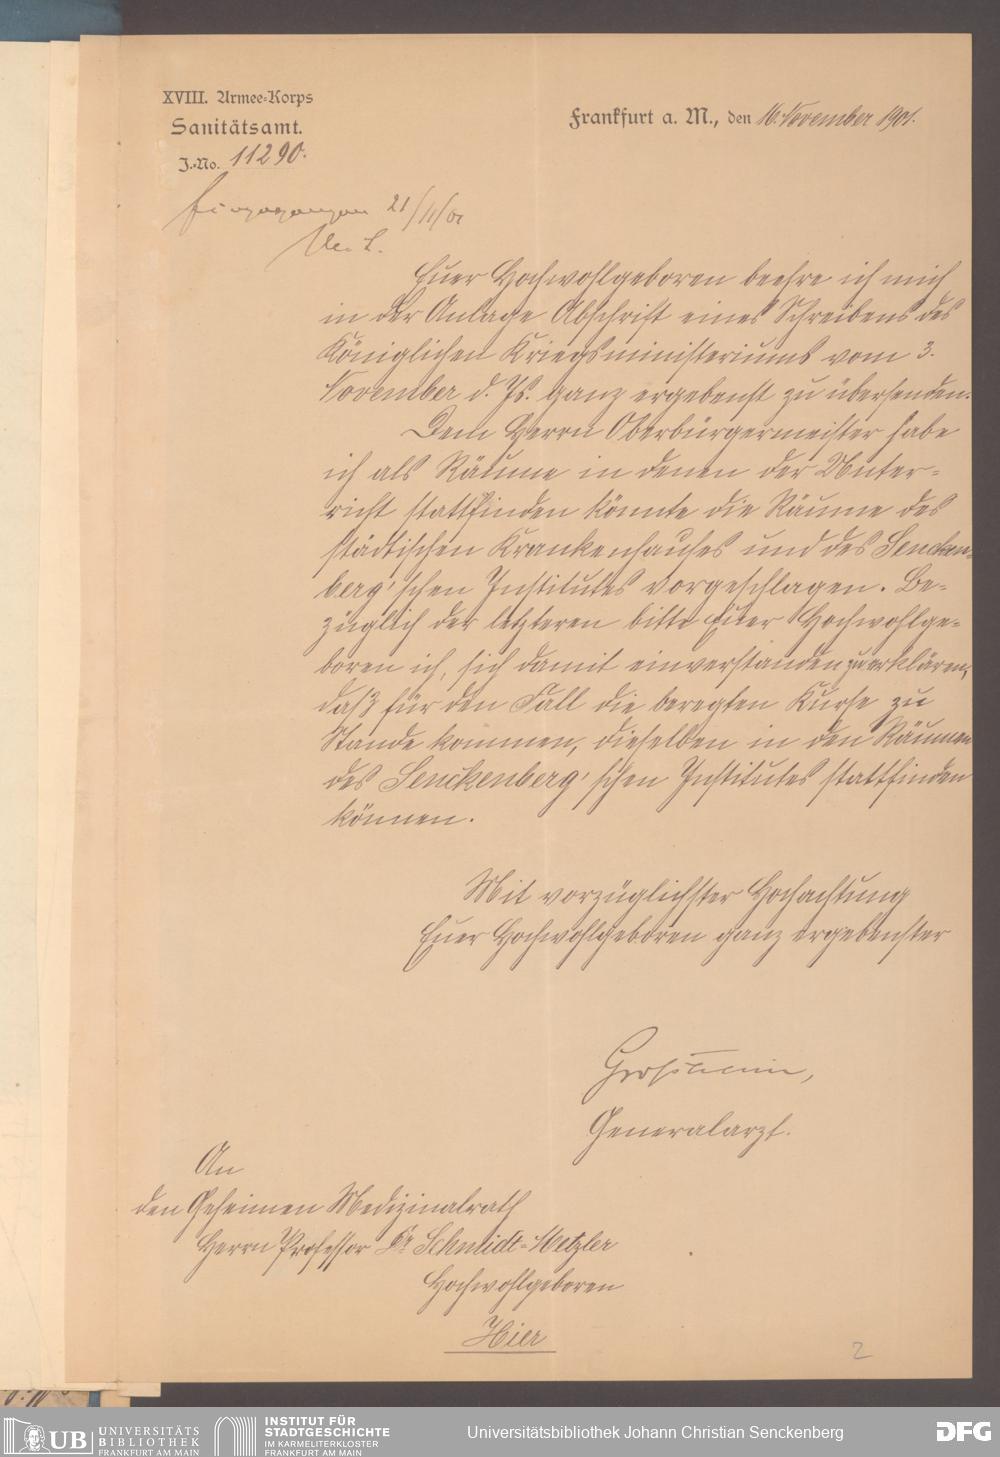 XVIII. Armee-Korps
Sanitätsamt.
J.-No. 11290.
Frankfurt a. M., den 16. November 1901.
Eingegangen 21/11/01
Euer Hochwohlgeboren beehre ich mich
in der Anlage Abschrift eines Schreibens des
Königlichen Kriegsministeriums vom 3.
November d. Js. ganz ergebenst zu übersenden.
Dem Herrn Oberbürgermeister habe
ich als Räume in denen der Unter-
richt stattfinden könnte die Räume des
städtischen Krankenhauses und des Sencken-
berg'schen Institutes vorgeschlagen. Be-
züglich der letzteren bitte Euer Hochwohlge-
boren ich, sich damit einverstanden zu erklären,
daß für den Fall die beregten Kurse zu
Stande kommen, dieselben in den Räumen
des Senckenberg'schen Institutes stattfinden
können.
Mit vorzüglichster Hochachtung
Euer Hochwohlgeboren ganz ergebenster
Generalarzt.
An
den Geheimen Medizinalrath
Herrn Professor Dr Schmidt-Metzler
Hochwohlgeboren
Hier
2
UB UNIVERSITÄTS
BIBLIOTHEK
FRANKFURT AM MAIN
INSTITUT FÜR
STADTGESCHICHTE
IM KARMELITERKLOSTER
FRANKFURT AM MAIN
Universitätsbibliothek Johann Christian Senckenberg
DFG